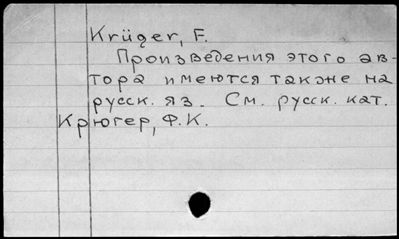 Krüger, F.
Произведения этого ав-
тора имеются также на
русск. яз. См. русск. кат.
Крюгер, Ф.К.